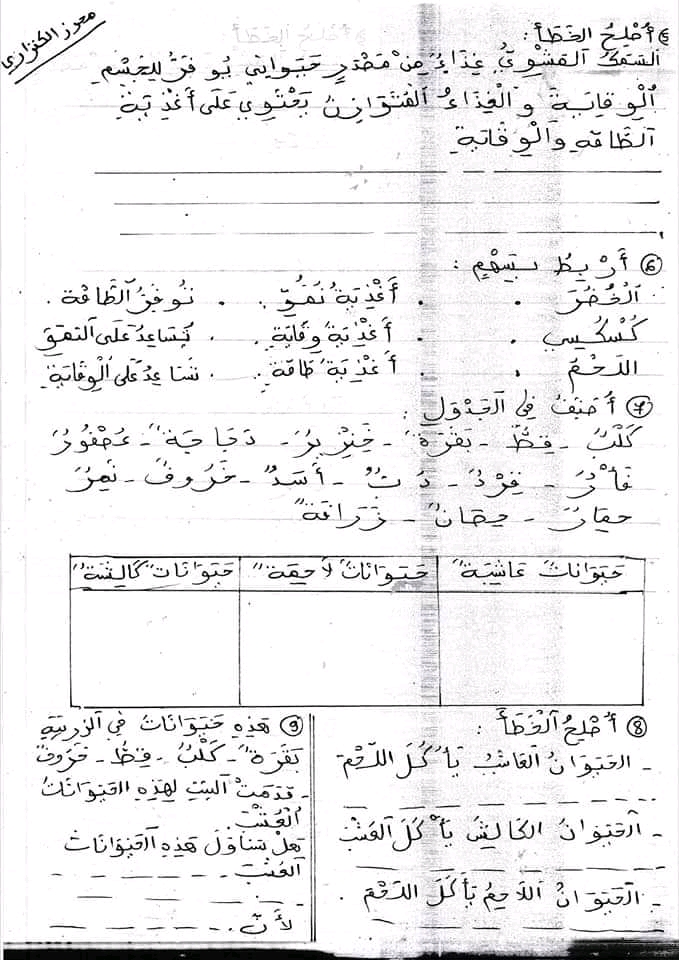 محرز الكنزاري
أُصْلِحُ الخَطَأَ :
السَّمَكُ الْمَشْوِيُّ غِذَاءٌ مِنْ مَصْدَرٍ حَيَوَانِيٍّ يُوَفِّرُ لِلْجِسْمِ
الْوِقَايَةَ وَالْغِذَاءُ الْمُتَوَازِنُ يَحْتَوِي عَلَى أَغْذِيَةِ
الطَّاقَةِ وَالْوِقَايَةِ
⑥ أَرْبِطُ بِسَهْمٍ :
الْخُضَرُ . . أَغْذِيَةُ نُمُوٍّ . . تُوَفِّرُ الطَّاقَةَ .
كُسْكُسِي . . أَغْذِيَةُ وِقَايَةٍ . . تُسَاعِدُ عَلَى النُّمُوِّ
اللَّحْمُ . . أَغْذِيَةُ طَاقَةٍ . . تُسَاعِدُ عَلَى الْوِقَايَةِ
⑦ أُصَنِّفُ فِي الْجَدْوَلِ :
كَلْبٌ - قِطٌّ - بَقَرَةٌ - خِنْزِيرٌ - دَجَاجَةٌ - عُصْفُورٌ
فَأْرٌ - قِرْدٌ - دُبٌّ - أَسَدٌ - خَرُوفٌ - نَمِرٌ
حِمَارٌ - حِصَانٌ - زَرَافَةٌ
حَيَوَانَاتٌ عَاشِبَةٌ حَيَوَانَاتٌ لَاحِمَةٌ حَيَوَانَاتٌ كَالِشَةٌ
⑧ أُصْلِحُ الْخَطَأَ :
- الحَيَوَانُ العَاشِبُ يَأْكُلُ اللَّحْمَ
- الحَيَوَانُ الكَالِشُ يَأْكُلُ العُشْبَ
- الحَيَوَانُ اللَّاحِمُ يَأْكُلُ اللَّحْمَ .
⑨ هَذِهِ حَيَوَانَاتٌ فِي الزَّرِيبَةِ
بَقَرَةٌ - كَلْبٌ - قِطٌّ - خَرُوفٌ
- قَدَّمَتْ الْبِنْتُ لِهَذِهِ الحَيَوَانَاتِ
الْعُشْبَ.
هَلْ تَتَنَاوَلُ هَذِهِ الْحَيَوَانَاتُ
الْعُشْبَ
لِأَنَّ